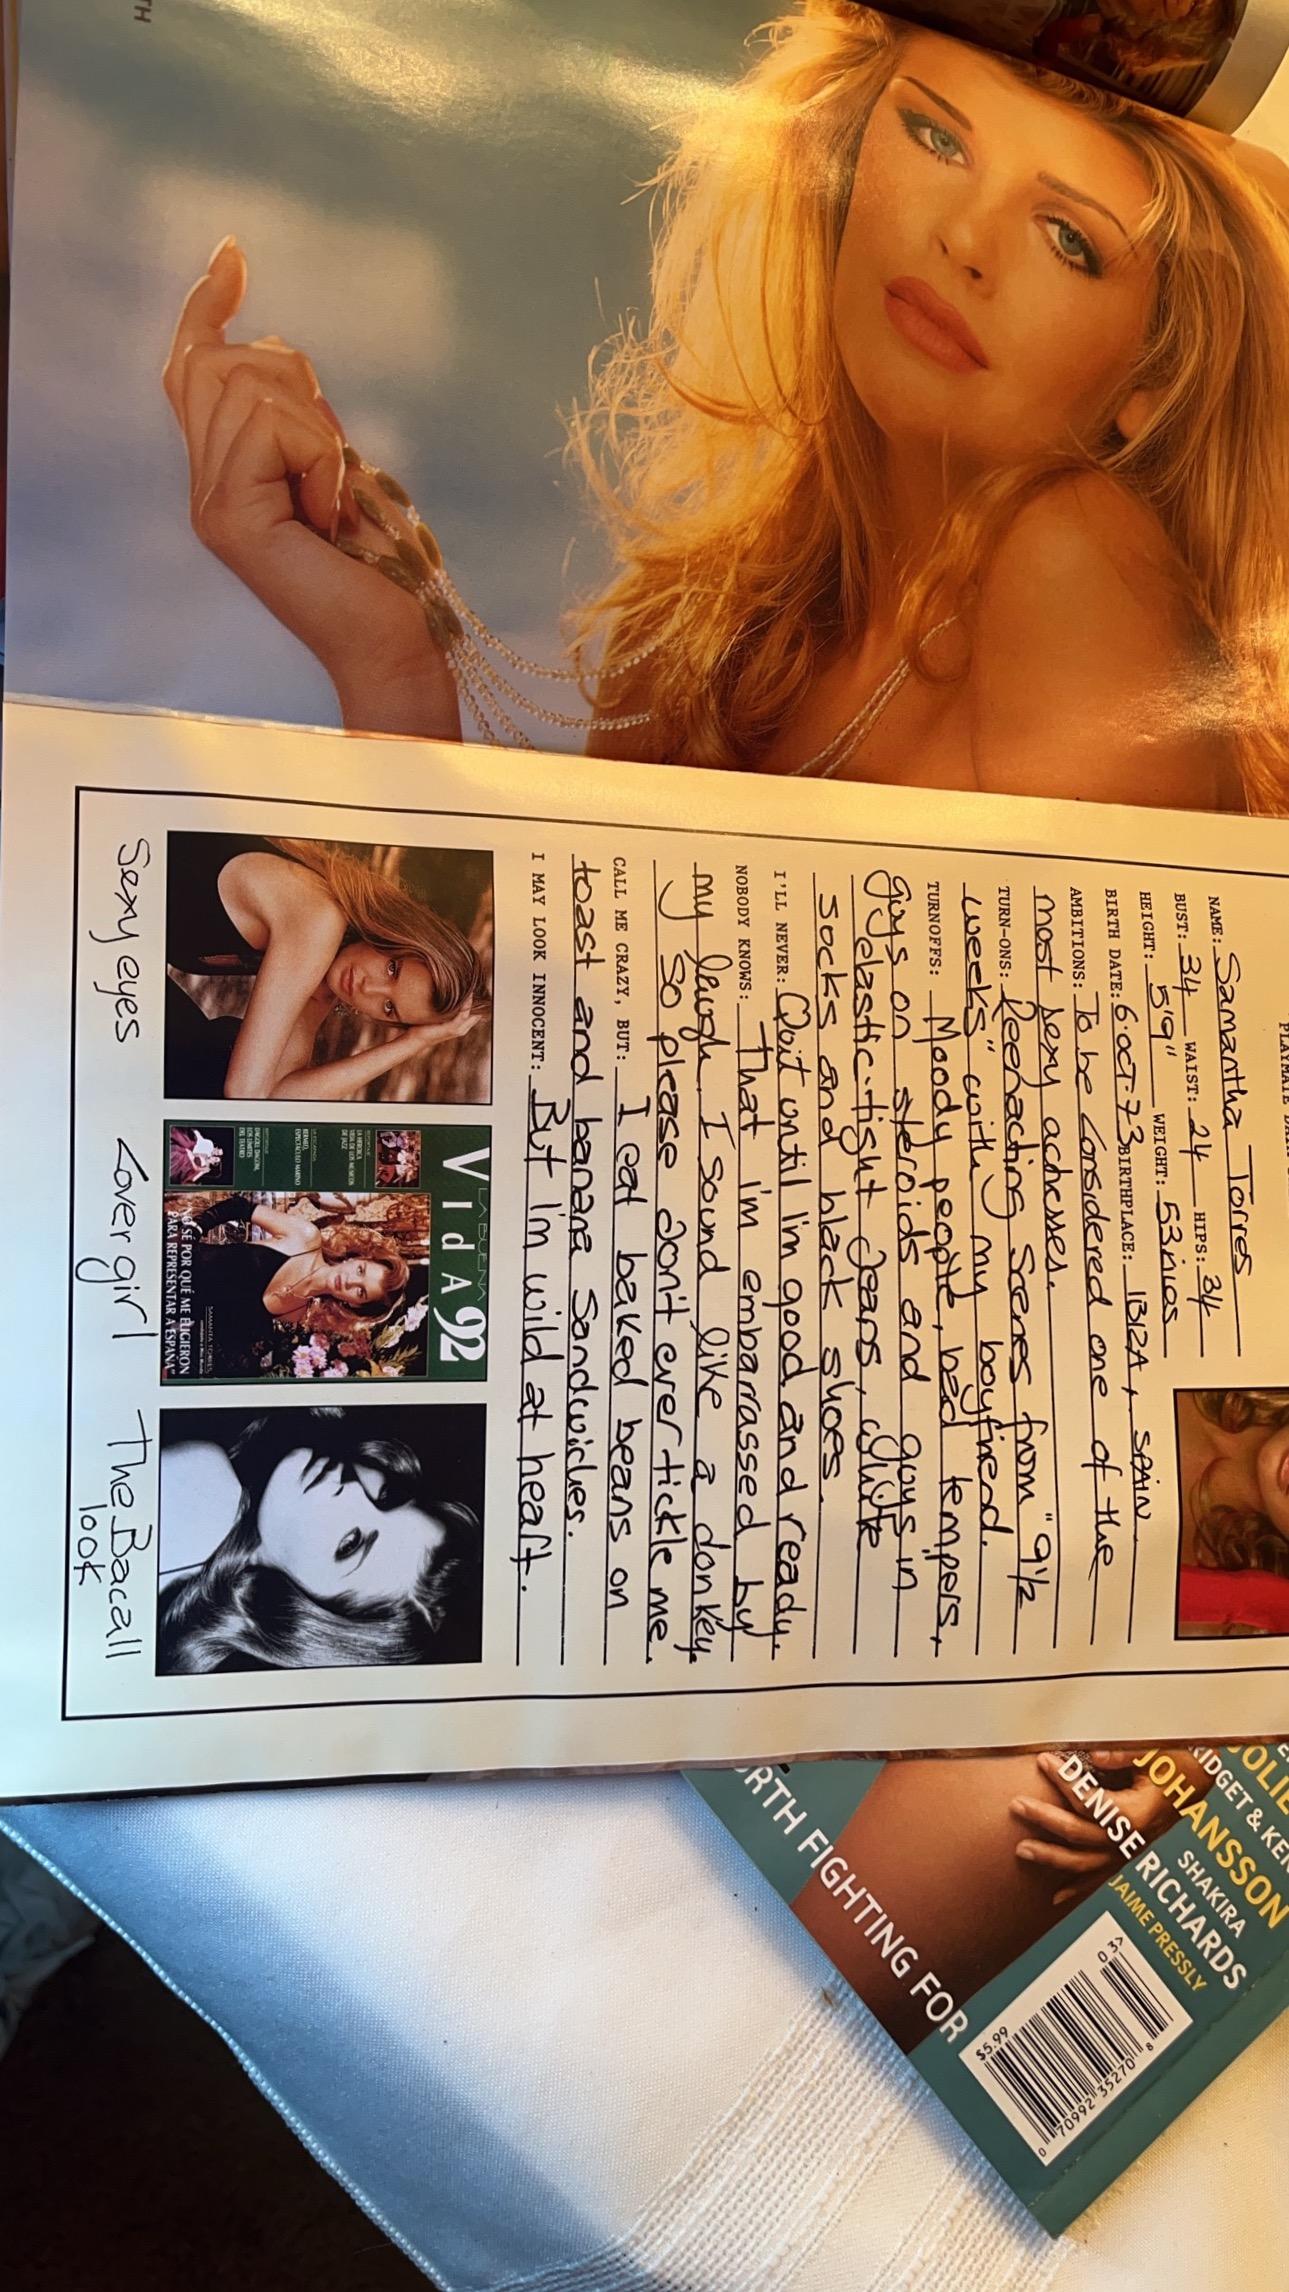 TH
NAME: Samantha Torres
BUST: 34 WAIST: 24 HIPS: 34
HEIGHT: 5'9" WEIGHT: 53 kilos
BIRTH DATE: 6·OCT·73 BIRTHPLACE: IBIZA, SPAIN
AMBITIONS: To be considered one of the
most sexy actresses.
TURN-ONS: Reenacting Scenes from "9½
weeks" with my boyfriend.
TURNOFFS: Moody people, bad tempers,
guys on steroids and guys in
elastic-tight Jeans, white
socks and black shoes.
I'LL NEVER: Quit until I'm good and ready.
NOBODY KNOWS: That I'm embarrassed by
my laugh. I sound like a donkey,
So please don't ever tickle me.
CALL ME CRAZY, BUT: I eat baked beans on
toast and banana Sandwiches.
I MAY LOOK INNOCENT: But I'm wild at heart.
LA BUENA
VIdA 92
REPORTAJE
LA HEROICA
VIDA DE LOS MUSEOS
DE JAZZ
ESPECTÁCULO MARINO
LOS LÍMITES
DEL TEATRO
SAMANTA TORRES
"NO SÉ POR QUÉ ME ELIGIERON
PARA REPRESENTAR A ESPAÑA"
Sexy eyes
Cover girl
The Bacall
look
JOLIE
BRIDGET & KEN
JOHANSSON
SHAKIRA
DENISE RICHARDS
JAIME PRESSLY
ORTH FIGHTING FOR
$5.99
03>
0 70992 35270 8